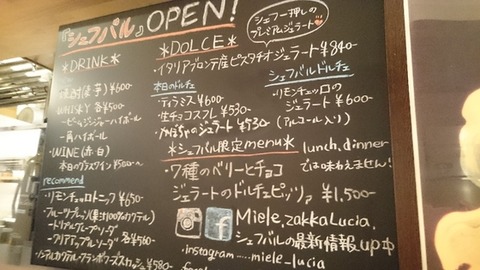 『シェフバル』OPEN!
シェフ一押しの
プレミアムジェラート
*DRINK*
・焼酎(麦・芋)¥600-
・WHISKY 各¥500-
-ビームジンジャーハイボール
-角ハイボール
・WINE(赤・白)
本日のグラスワイン¥500~
recommend
・リモンチェッロトニック¥650-
・フルーツプレッソ(果汁100%カクテル)
-トリプルグレープソーダ
-クリアアップルソーダ 各¥560-
*DOLCE*
・イタリアブロンテ産ピスタチオジェラート¥840-
本日のドルチェ
・ティラミス¥600-
・生チョコスフレ¥530-
・かぼちゃのジェラート¥530-
シェフバルドルチェ
・リモンチェッロの
ジェラート¥600-
(アルコール入り)
*シェフバル限定menu*
lunch, dinner
では味わえません!
・7種のベリーとチョコ
ジェラートのドルチェピッツァ ¥1,500-
Miele, zakkaLucia,
シェフバルの最新情報up中
・instagram.....miele_lucia